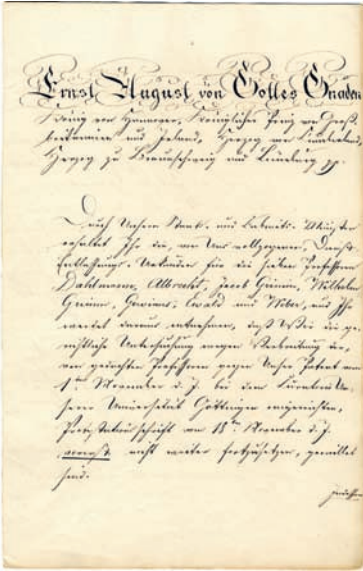 Ernst August von Gottes Gnaden
König von Hannover, Königlicher Prinz von Groß-
britannien und Irland, Herzog von Cumberland,
Herzog zu Braunschweig und Lüneburg pp.
Durch Unsern Staats- und Cabinets-Minister
erhaltet Ihr die, von Uns vollzogenen, Dienst-
Entlassungs-Urkunden für die sieben Professoren
Dahlmann, Albrecht, Jacob Grimm, Wilhelm
Grimm, Gervinus, Ewald und Weber, und Ihr
werdet daraus entnehmen, daß Wir die ge-
richtliche Untersuchung wegen Verbreitung der,
von gedachten Professoren gegen Unser Patent vom
1ten November d. J. bei dem Curatorio Un-
serer Universität Göttingen eingereichten,
Protestationsschrift vom 18ten November d. J.
vorerst nicht weiter fortzusetzen, gewillet
sind.